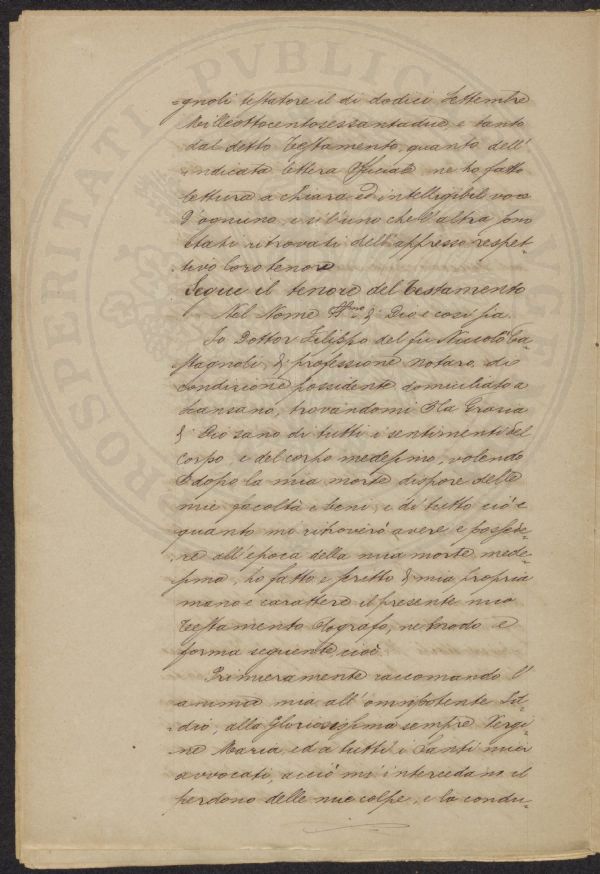 PROSPERITATI PVBLICAE AVGENDAE
=gnoli testatore il di dodici Settembre
Milleottocentosessantadue, e tanto
dal detto Testamento, quanto dell'
indicata lettera Officiale ne ho fatto
lettura a chiara ed intelligibil voce
d'ognuno, e sì l'uno che l'altra sono
stati ritrovati dell'appresso respet-
tivo loro tenore
Segue il tenore del Testamento
Nel Nome SSmo di Dio e così sia.
Io Dottor Filippo del fu Niccolò Ca-
stagnoli, di professione notaro, di
condizione possidente domiciliato a
Lansano, trovandomi P la Grazia
di Dio sano di tutti i sentimenti del
corpo, e del corpo medesimo, volendo
P dopo la mia morte dispore delle
mie facoltà e beni, e di tutto ciò e
quanto mi ritroverò avere e posside=
=re all'epoca della mia morte mede=
sima, ho fatto e scritto di mia propria
mano e carattere il presente mio
Testamento Olografo, nel modo e
forma seguente, cioè
Primieramente raccomando l'
anima mia all'omnipotente Id=
=dio, alla Gloriosissima sempre Vergi=
=ne Maria, ed a tutti i Santi miei
avvocati, acciò mi intercedano il
perdono delle mie colpe, e la condu=